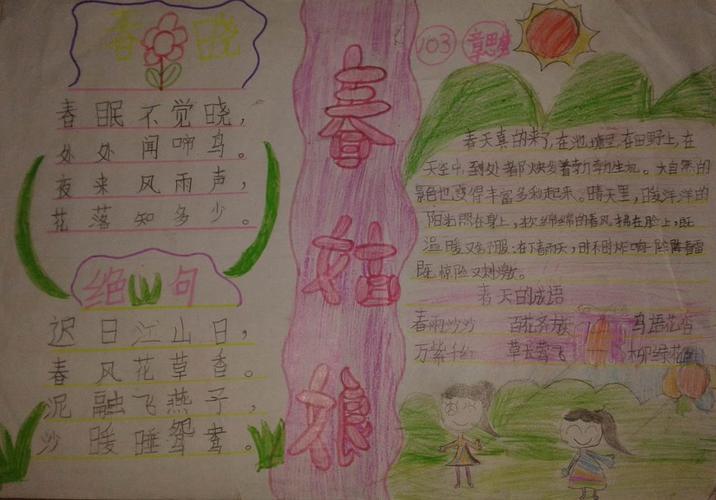 春晓
春眠不觉晓，
处处闻啼鸟。
夜来风雨声，
花落知多少。
绝句
迟日江山日，
春风花草香。
泥融飞燕子，
沙暖睡鸳鸯。
春姑娘
103 章思
春天真的来了,在池塘里,在田野上,在
天空中,到处都焕发着勃勃生机。大自然的
景色也变得丰富多彩起来。晴天里,暖洋洋的
阳光照在身上,软绵绵的春风拂在脸上,既
温暖又舒服;在下雨天,时不时炸响一阵春雷
既惊险又刺激。
春天的成语
春雨沙沙 百花齐放 鸟语花香
万紫千红 草长莺飞 柳绿花